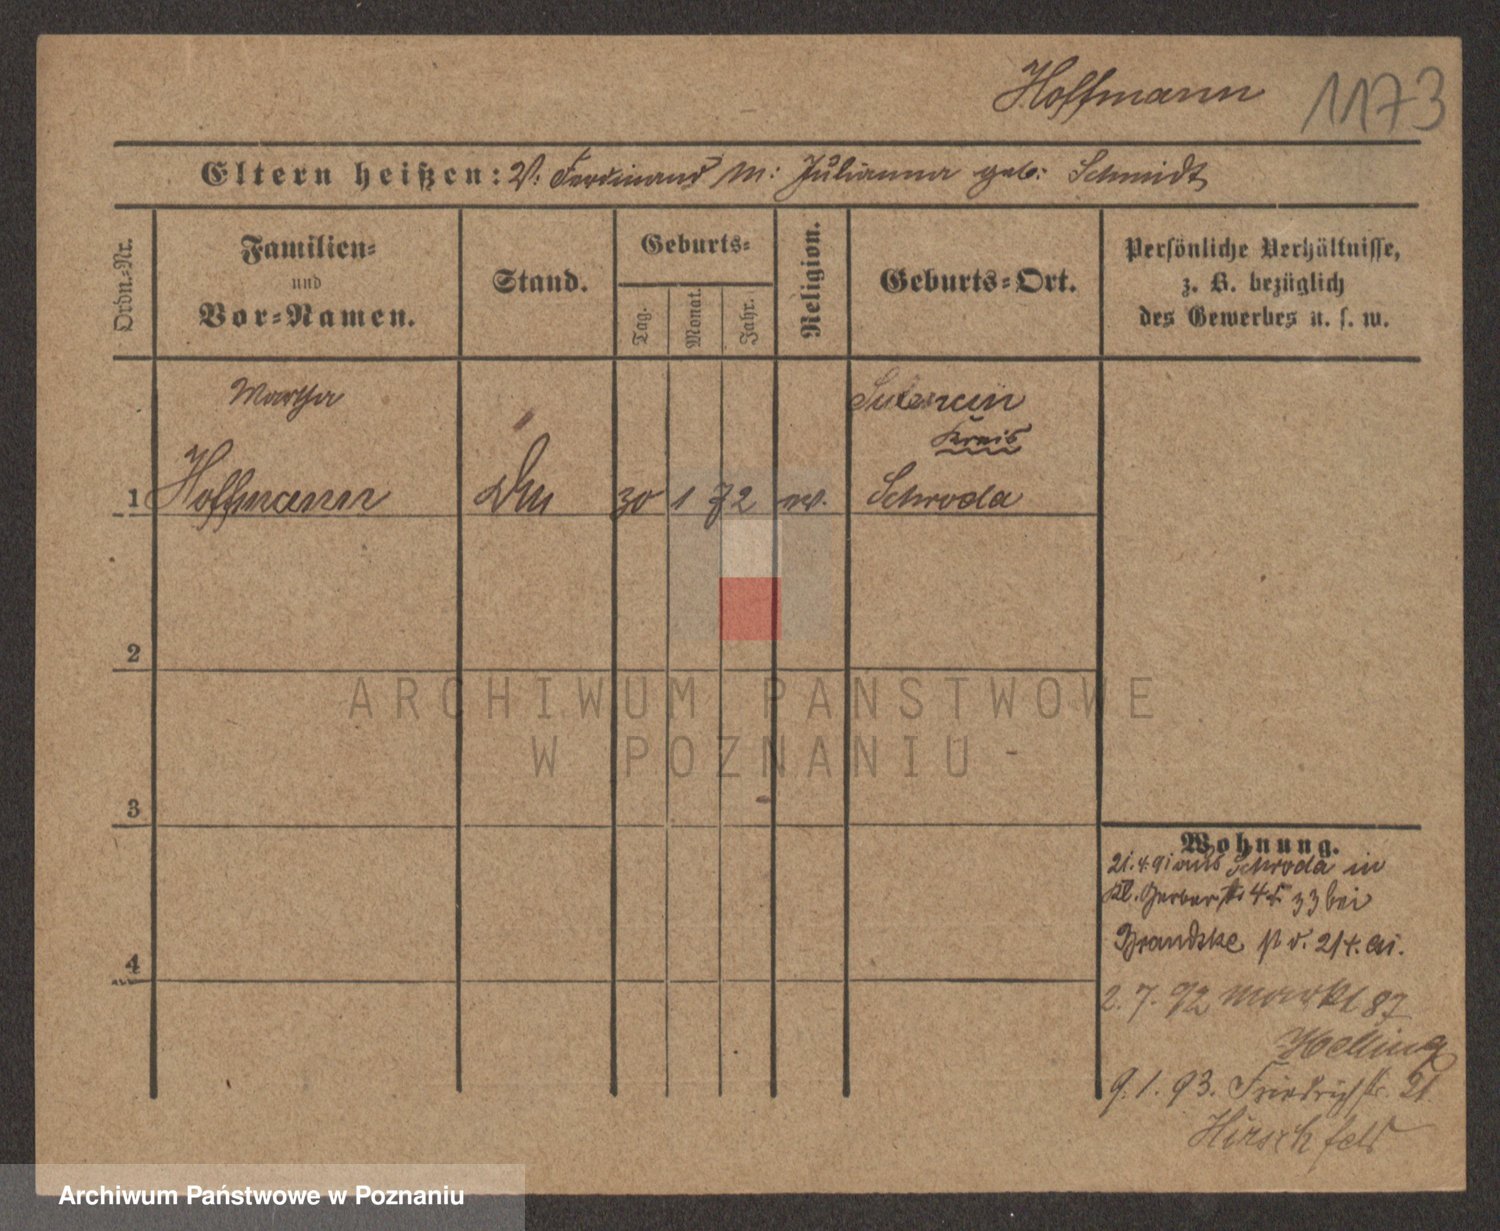 Hoffmann 1173
Eltern heißen: V: Ferdinand M: Julianna geb: Schmidt
Ordn.-Nr.
Familien-
und
Vor-Namen.
Stand.
Geburts-
Tag.
Monat.
Jahr.
Religion.
Geburts-Ort.
Persönliche Verhältnisse,
z. B. bezüglich
des Gewerbes u. s. w.
Martha
Kreis
1 Hoffmann 30 1 72 Schroda
2
ARCHIWUM PAŃSTWOWE
W POZNANIU
3
Wohnung.
21.4.91 aus Schroda in
Kl. Gerberstr 33 bei
4
2.7.92 Markt 87
Helling
9.1.93. Friedrichstr. 21
Hirschfeld
Archiwum Państwowe w Poznaniu